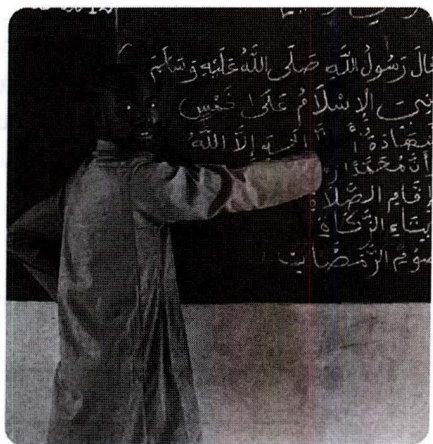 قالَ رَسُولُ اللَّهِ صَلَّى اللَّهُ عَلَيْهِ وَسَلَّمَ
بُنِيَ الإِسْلَامُ عَلَى خَمْسٍ
شَهَادَةُ إِلَّا اللَّهُ
مُحَمَّدًا
إِقَامِ الصَّلَاةِ
إِيتَاءِ الزَّكَاةِ
صَوْمِ الرَّمَضَانِ